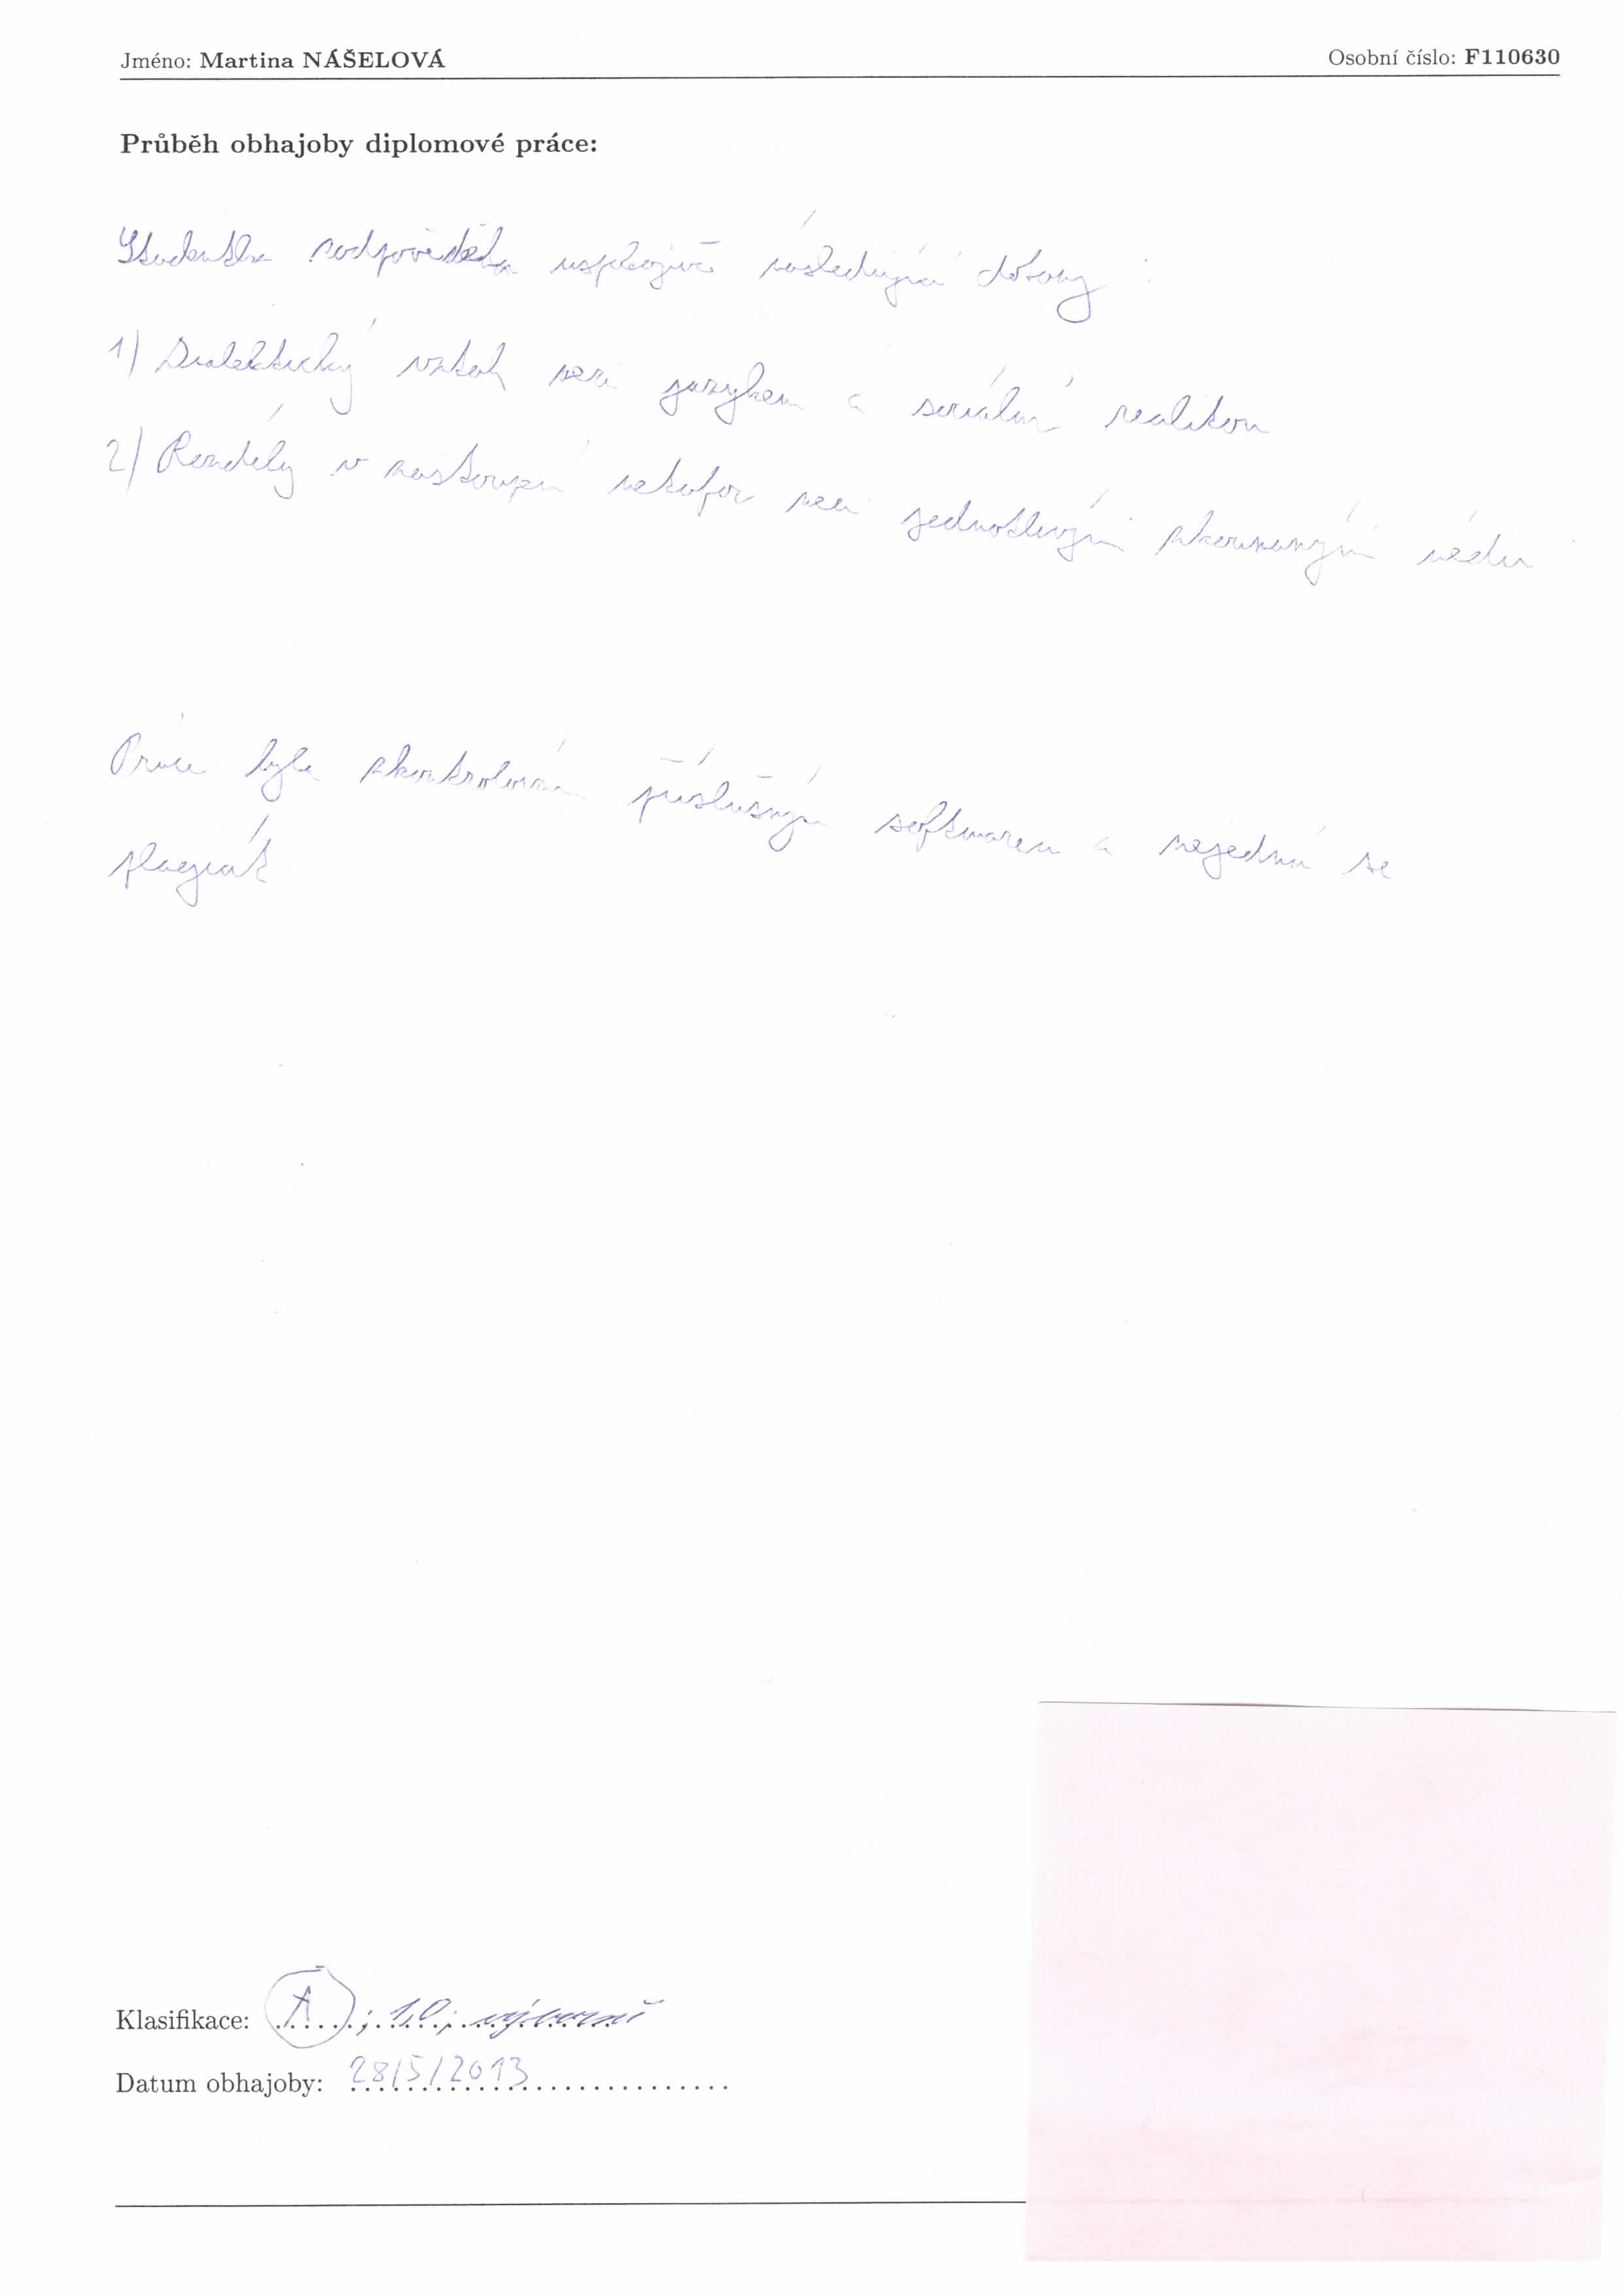 Jméno: Martina NÁŠELOVÁ Osobní číslo: F110630
Průběh obhajoby diplomové práce:
Studentka zodpověděla uspokojivě následující dotazy:
1) Dialektický vztah mezi jazykem a sociální realitou
2) Rozdíly v zastoupení metafor mezi jednotlivými zkoumanými médii
Práce byla zkontrolována příslušným softwarem a nejedná se
plagiát
Klasifikace: A; 1.0; výborně
Datum obhajoby: 28/5/2013